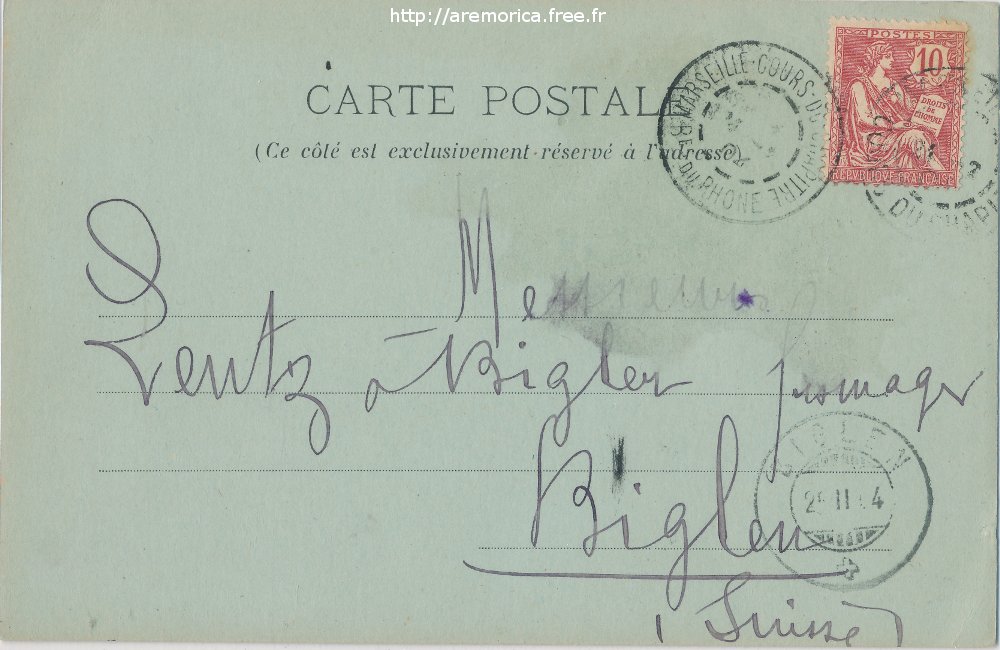 http://aremorica.free.fr
POSTES
10
DROITS
DE
L'HOMME
REPVBLIQVE FRANÇAISE
MARSEILLE-COURS-DU-CHAPITRE
BES DU RHONE
CARTE POSTALE
(Ce côté est exclusivement réservé à l'adresse)
Messieurs
Lentz à Bigler fromager
Biglen
(Suisse)
BIGLEN